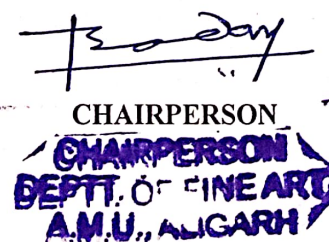 CHAIRPERSON
CHAIRPERSON
DEPTT. OF FINE ART
A.M.U., ALIGARH